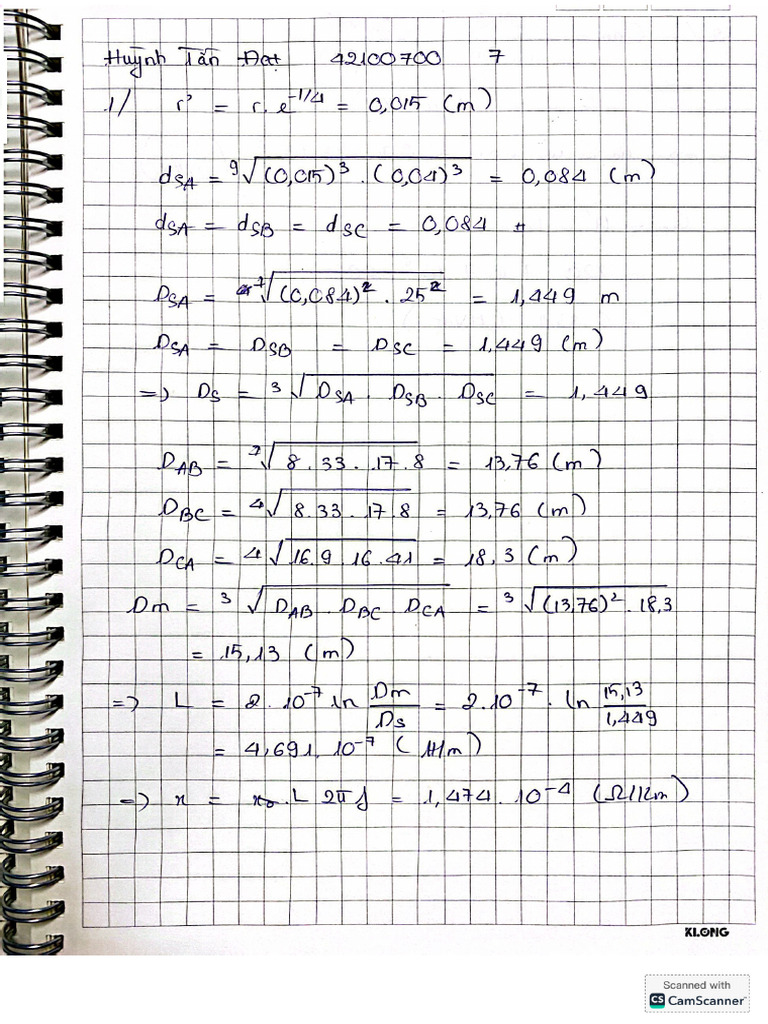 Huỳnh Tấn Đạt 42100700 7
1/ r' = r. e^-1/4 = 0,015 (m)
dSA = ⁹√(0,015)³ . (0,04)³ = 0,084 (m)
dSA = dSB = dSC = 0,084
DSA = √(0,084)² . 25² = 1,449 m
DSA = DSB = DSC = 1,449 (m)
=) DS = ³√DSA . DSB . DSC = 1,449
DAB = √8.33.17.8 = 13,76 (m)
DBC = ⁴√8.33.17.8 = 13,76 (m)
DCA = ⁴√16.9.16.41 = 18,3 (m)
Dm = ³√DAB . DBC DCA = ³√(13,76)² . 18,3
= 15,13 (m)
=) L = 2.10^-7 ln Dm/Ds = 2.10^-7 . ln 15,13/1,449
= 4,691. 10^-7 (H/m)
=) x = L 2π f = 1,474 . 10^-4 (Ω/km)
KLONG
Scanned with
CS CamScanner